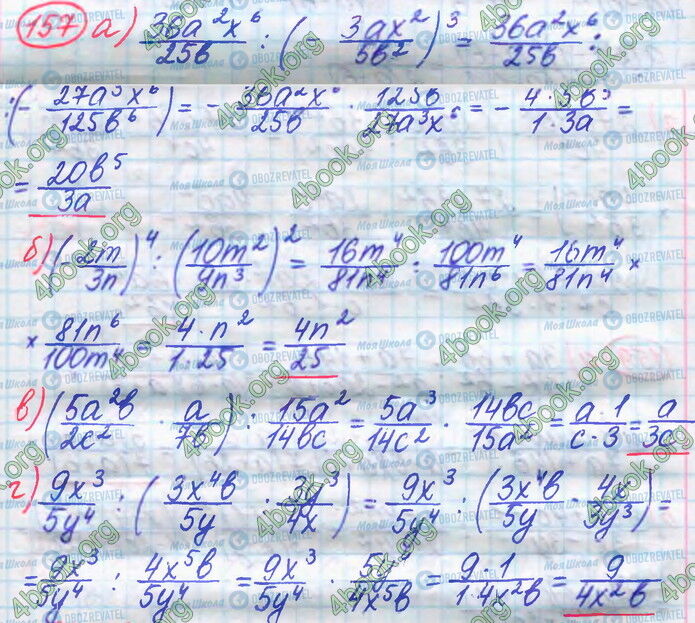 157 а) 36a²x⁶/25b : (- 3ax²/5b²)³ = 36a²x⁶/25b :
: (- 27a³x⁶/125b⁶) = - 36a²x⁶/25b · 125b/27a³x⁶ = - 4·5b⁵/1·3a =
= 20b⁵/3a
б) (2m/3n)⁴ : (10m²/4n³)² = 16m⁴/81n⁴ : 100m⁴/81n⁶ = 16m⁴/81n⁴ ×
× 81n⁶/100m⁴ = 4·n²/1·25 = 4n²/25
в) (5a²b/2c² · a/7b) : 15a²/14bc = 5a³/14c² · 14bc/15a² = a·1/c·3 = a/3c
г) 9x³/5y⁴ : (3x⁴b/5y : 3y³/4x) = 9x³/5y⁴ : (3x⁴b/5y · 4x/3y³) =
= 9x³/5y⁴ : 4x⁵b/5y⁴ = 9x³/5y⁴ · 5y⁴/4x⁵b = 9·1/1·4x²b = 9/4x²b